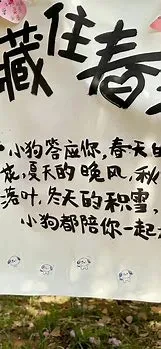 藏住春
·小狗答应你,春天的
花,夏天的晚风,秋
落叶,冬天的积雪,
小狗都陪你一起